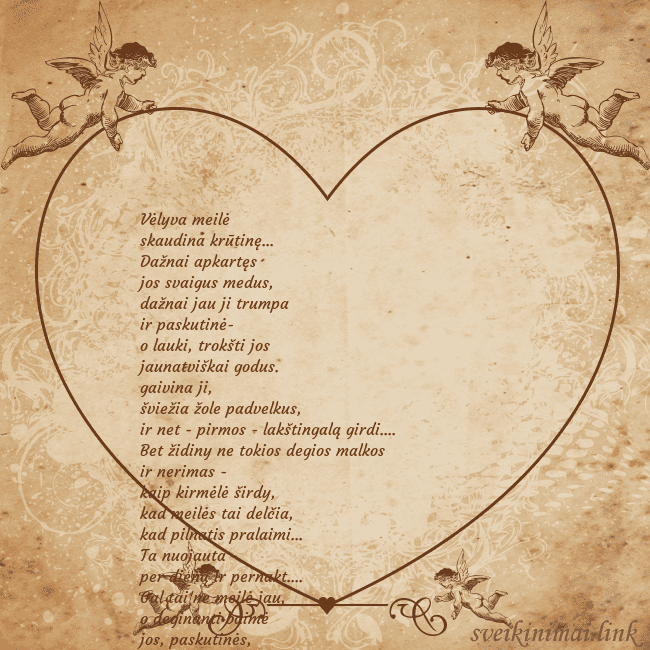 Vėlyva meilė
skaudina krūtinę...
Dažnai apkartęs
jos svaigus medus,
dažnai jau ji trumpa
ir paskutinė-
o lauki, trokšti jos
jaunatviškai godus.
gaivina ji,
šviežia žole padvelkus,
ir net - pirmos - lakštingalą girdi....
Bet židiny ne tokios degios malkos
ir nerimas -
kaip kirmėlė širdy,
kad meilės tai delčia,
kad pilnatis pralaimi...
Ta nuojauta -
per dieną ir pernakt....
Gal tai ne meilė jau,
o deginanti baimė
jos, paskutinės,
sveikinimai.link